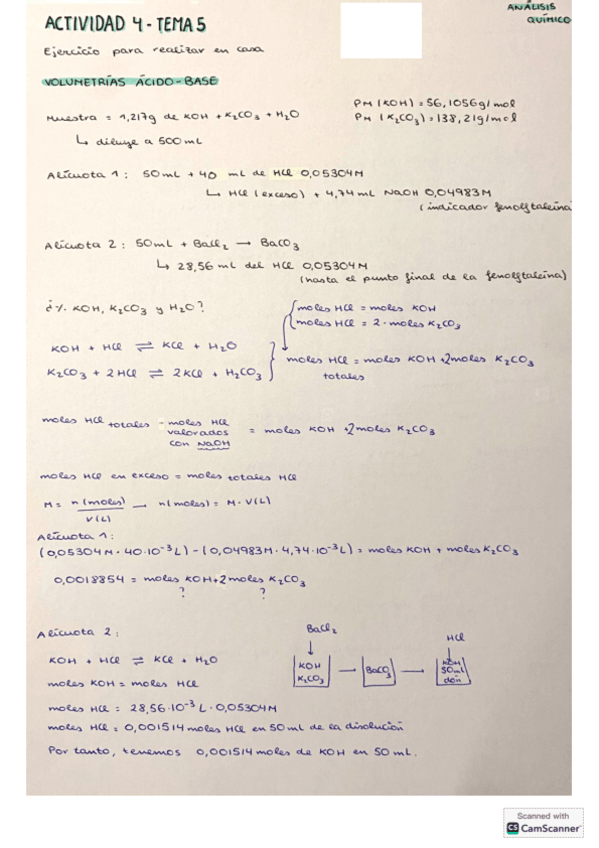 ANÁLISIS
QUÍMICO
ACTIVIDAD 4 - TEMA 5
Ejercicio para realizar en casa
VOLUMETRÍAS ÁCIDO-BASE
Muestra = 1,217g de KOH + K₂CO₃ + H₂O
PM (KOH) = 56,1056g/mol
PM (K₂CO₃) = 138,21g/mol
↳ diluye a 500mL
Alícuota 1: 50mL + 40 mL de HCl 0,05304M
↳ HCl (exceso) + 4,74 mL NaOH 0,04983M
(indicador fenolftaleína
Alícuota 2: 50mL + BaCl₂ → BaCO₃
↳ 28,56 mL del HCl 0,05304M
(hasta el punto final de la fenolftaleína)
¿% KOH, K₂CO₃ y H₂O?
moles HCl = moles KOH
moles HCl = 2 · moles K₂CO₃
KOH + HCl ⇌ KCl + H₂O
K₂CO₃ + 2HCl ⇌ 2KCl + H₂CO₃
moles HCl = moles KOH +2moles K₂CO₃
totales
moles HCl totales - moles HCl valorados con NaOH = moles KOH +2moles K₂CO₃
moles HCl en exceso = moles totales HCl
M = n(moles) / V(L) → n(moles) = M · V(L)
Alícuota 1:
(0,05304M · 40·10⁻³L) - (0,04983M · 4,74·10⁻³L) = moles KOH + moles K₂CO₃
0,0018854 = moles KOH+2moles K₂CO₃
? ?
Alícuota 2:
KOH + HCl ⇌ KCl + H₂O
moles KOH = moles HCl
BaCl₂
↓
KOH
K₂CO₃
→
BaCO₃
→
HCl
↓
KOH
50mL
dón
moles HCl = 28,56·10⁻³L · 0,05304M
moles HCl = 0,001514 moles HCl en 50 mL de la disolución
Por tanto, tenemos 0,001514 moles de KOH en 50 mL.
Scanned with
CS CamScanner